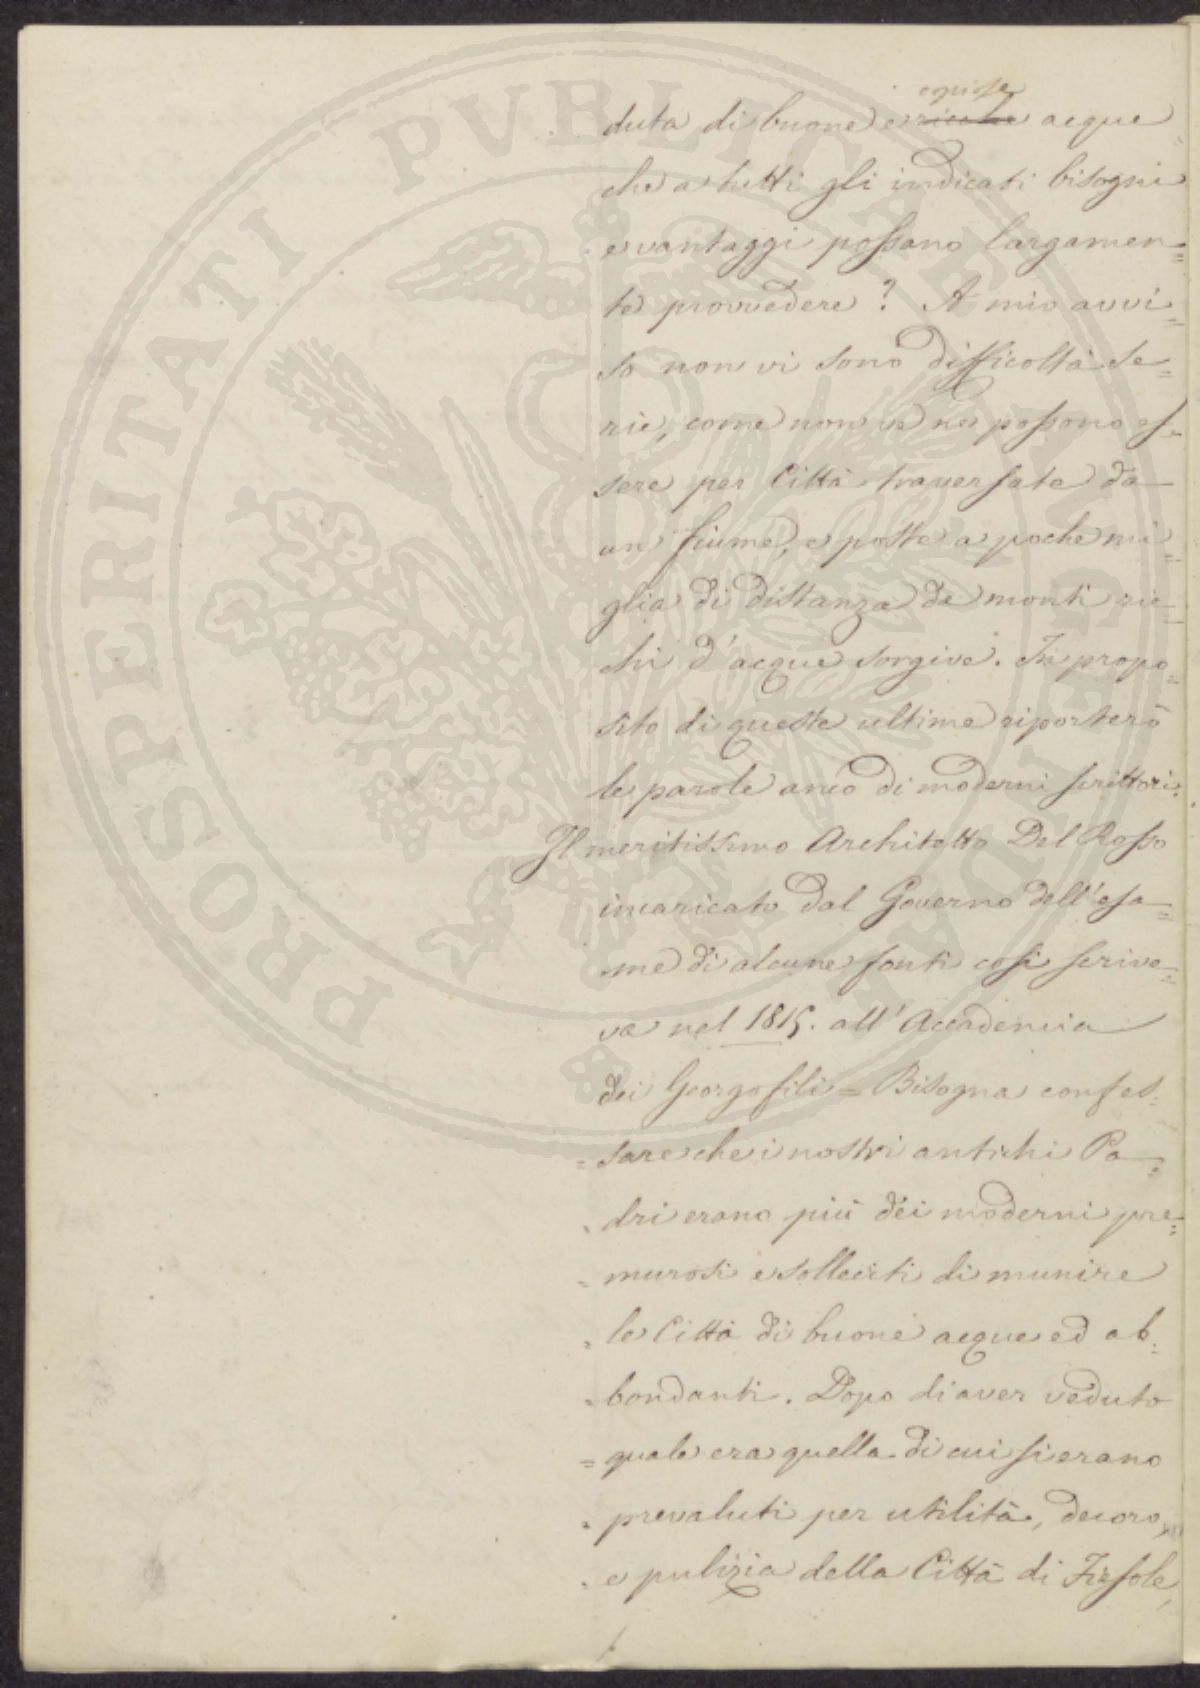 copiose
duta di buone e ricche acque
che a tutti gli indicati bisogni
e vantaggi possano largamen=
te provvedere? A mio avvi=
so non vi sono difficoltà se=
rie, come non ve ne possono es=
sere per Città traversate da
un fiume, e poste a poche mi=
glia di distanza da monti ric=
chi d'acque sorgive. In propo=
sito di queste ultime riporterò
le parole anco di moderni scrittori.
Il meritissimo Architetto Del Rosso
incaricato dal Governo dell'esa=
me di alcune fonti così scrive=
va nel 1815. all'Accademia
dei Georgofili = Bisogna confes=
= sare che i nostri antichi Pa=
= dri erano più dei moderni pre=
= murosi e solleciti di munire
= le Città di buone acque ed ab=
= bondanti. Dopo di aver veduto
= quale era quella di cui si erano
= prevaluti per utilità, decoro,
= e pulizia della Città di Fiesole,
PROSPERITATI PVBLICAE AVGENDAE